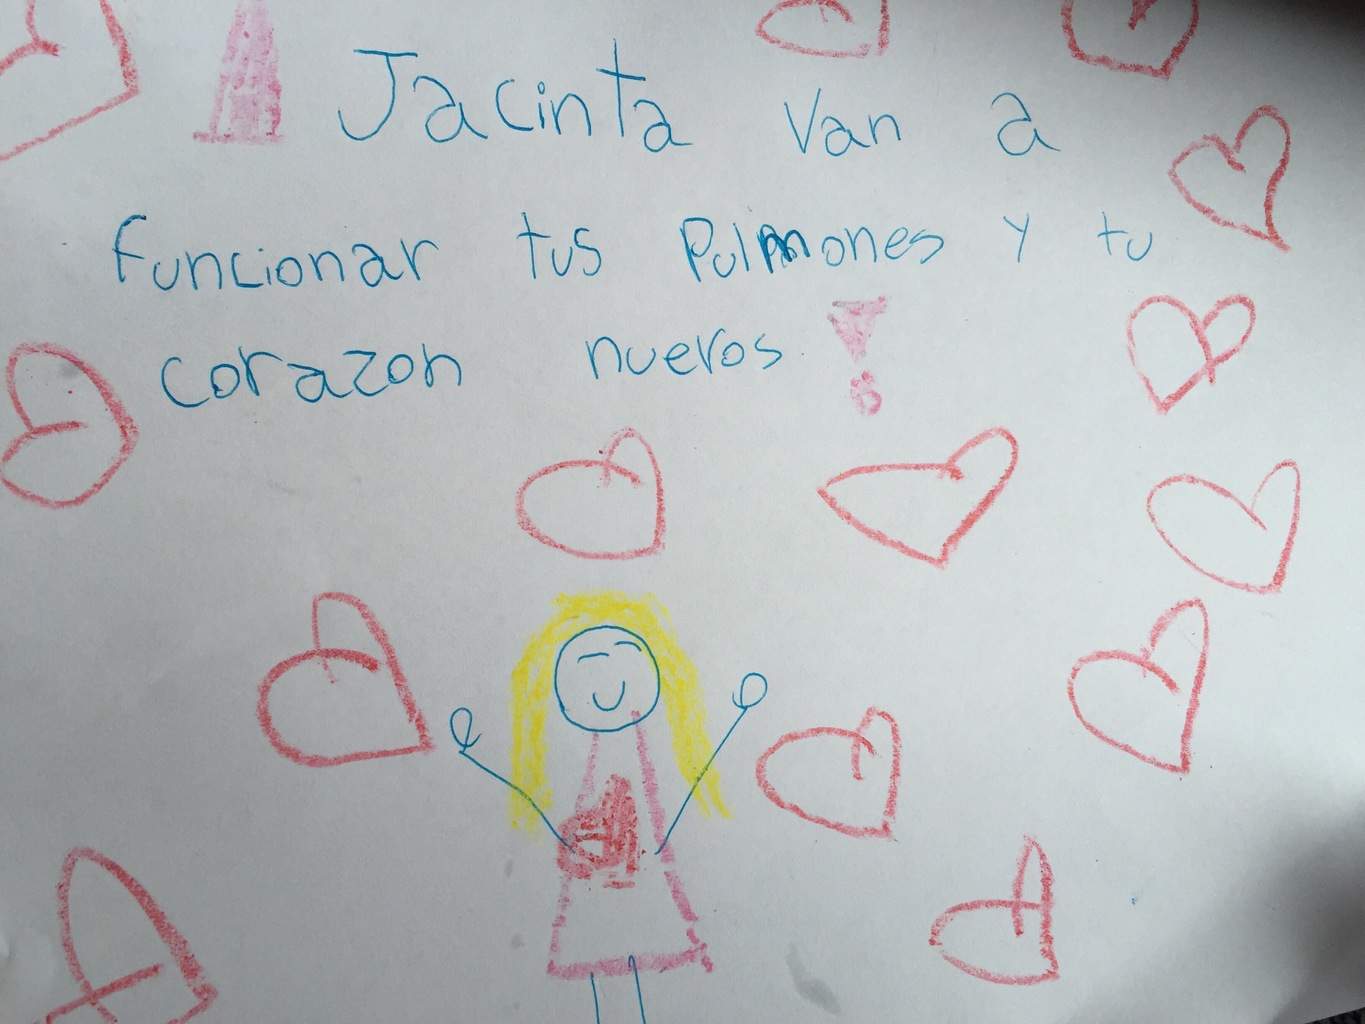 ¡ Jacinta van a
funcionar tus Pulmones y tu
corazon nuevos !